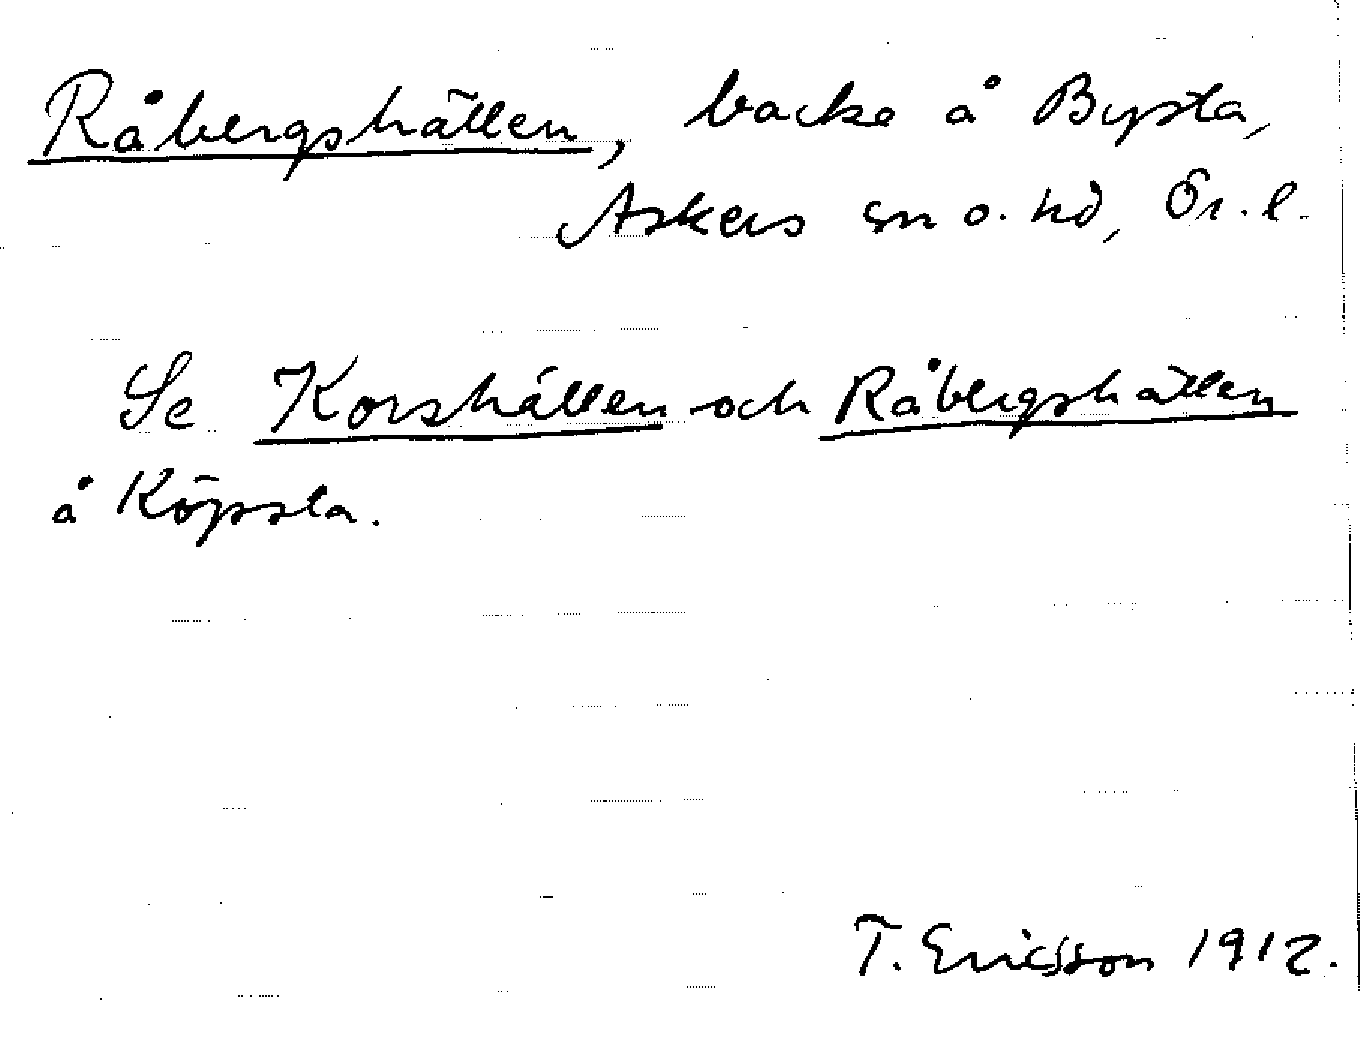 Råbergshällen, backe å Bysta,
Askers sn o. hd, Ör. l.
Se Korshällen och Råbergshällen
å Köpsta.
T. Ericsson 1912.